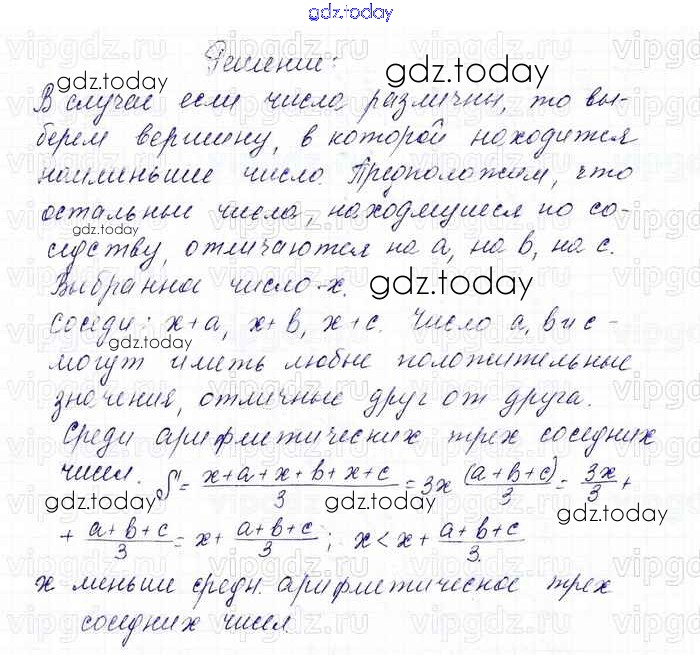 gdz.today
Решение:
В случае если числа различны, то вы-
берем вершину, в которой находится
наименьшее число. Предположим, что
остальные числа, находящиеся по со-
седству, отличаются на a, на b, на c.
Выбранное число - x.
Соседи: x+a, x+b, x+c. Число a, b и c -
могут иметь любые положительные
значения, отличные друг от друга.
Среди арифметических трех соседних
чисел. S' = (x+a+x+b+x+c)/3 = 3x (a+b+c)/3 = 3x/3 +
+ (a+b+c)/3 = x + (a+b+c)/3 ; x < x + (a+b+c)/3
x меньше средн. арифметическое трех
соседних чисел.